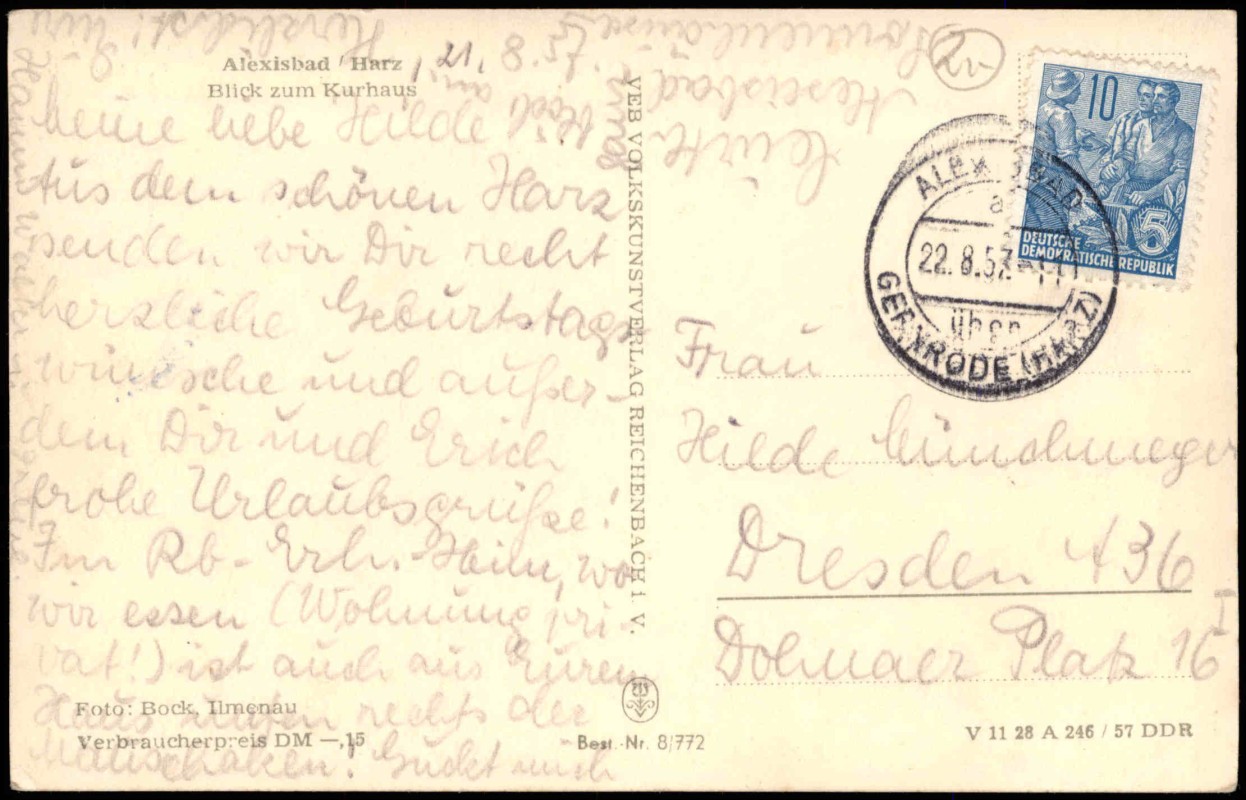 Alexisbad / Harz
Blick zum Kurhaus
21. 8.
Meine liebe Hilde!
Aus dem schönen Harz
senden wir Dir recht
herzliche Geburtstags
wünsche und außer-
dem Dir und Erich
frohe Urlaubsgrüße!
Im Rb- Erh. Heim, wo
wir essen (Wohnung pri-
vat!) ist auch aus Euren
Haus unten rechts der
Guckt mich
Foto: Bock, Ilmenau
Verbraucherpreis DM —,15
Best.-Nr. 8/772
VEB VOLKSKUNSTVERLAG REICHENBACH i. V.
Alexisbad
10
DEUTSCHE
DEMOKRATISCHE REPUBLIK
5
ALEXISBAD
a
22. 8. 57
über
GERNRODE (HARZ)
Frau
Hilde
Dresden A36
Platz 16 I
V 11 28 A 246 / 57 DDR